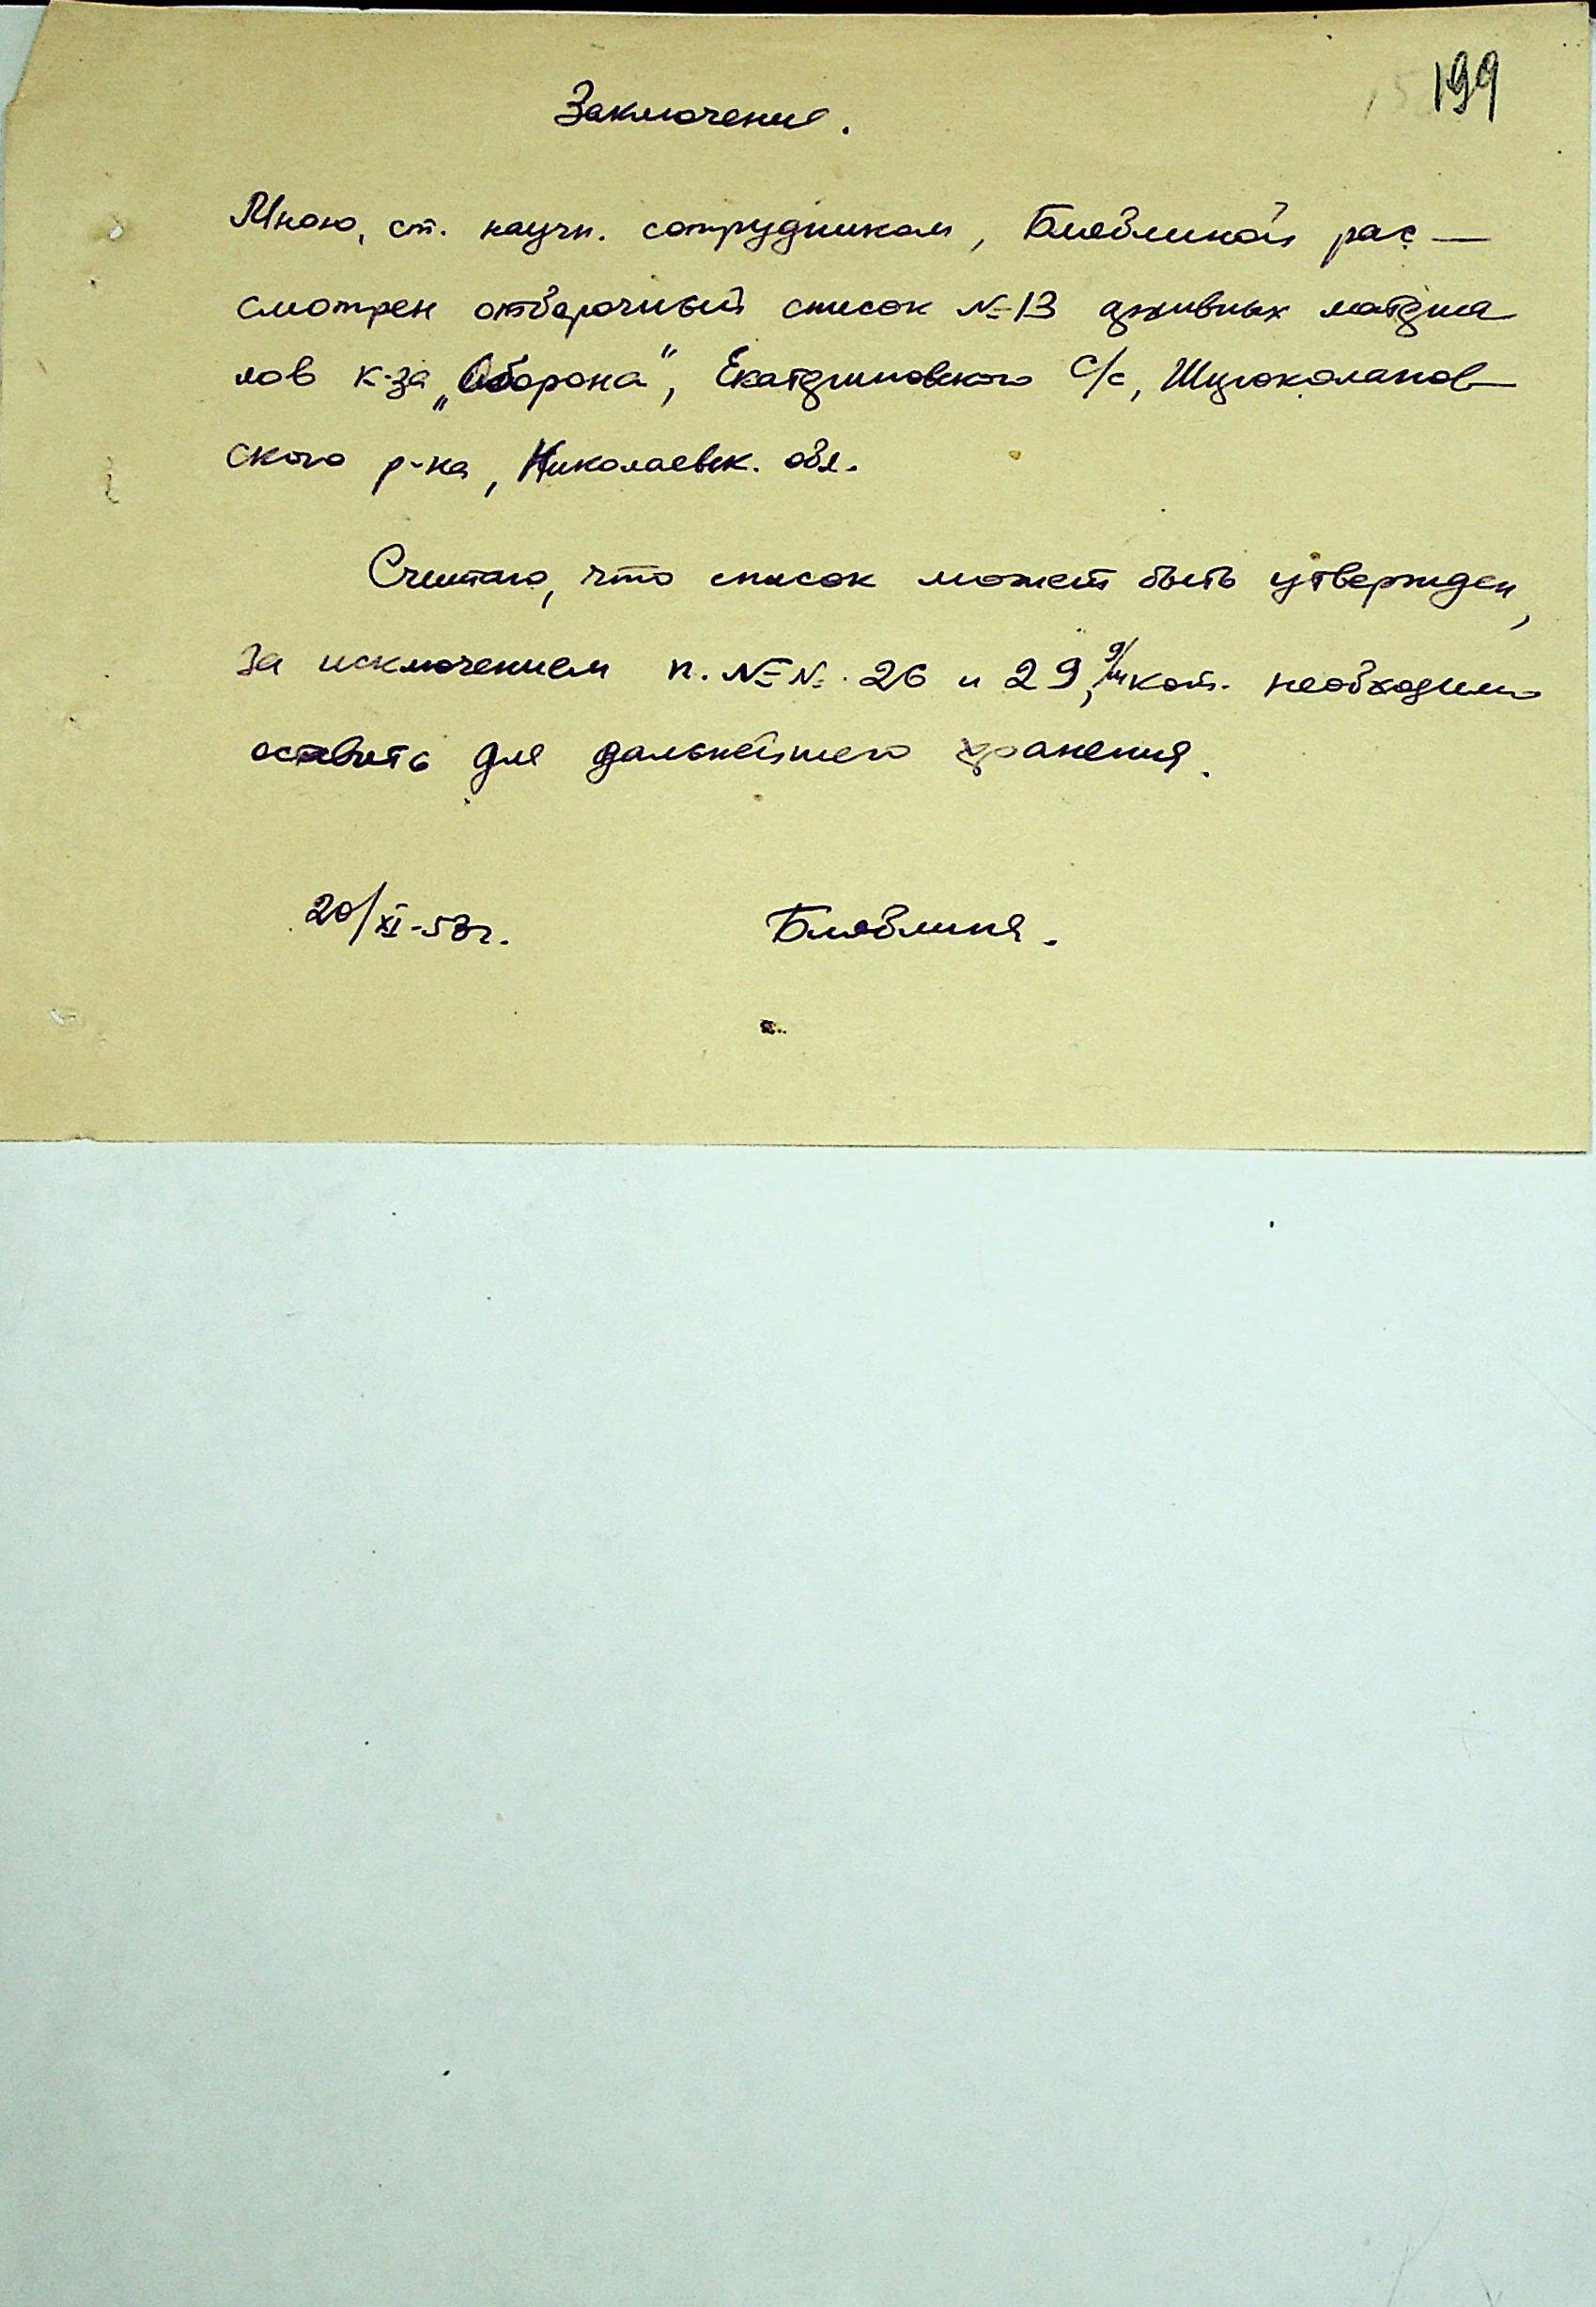 199
Заключение.
Мною, ст. научн. сотрудником, Блюблиной рас-
смотрен отборочный список №13 архивных материа
лов к-за „Оборона", Екатериновского с/с,
ского р-на, Николаевск. обл.
Считаю, что список может быть утвержден,
за исключением п. №№. 26 и 29, кот. необходимо
оставить для дальнейшего хранения.
20/XI-53г. Блюблина.